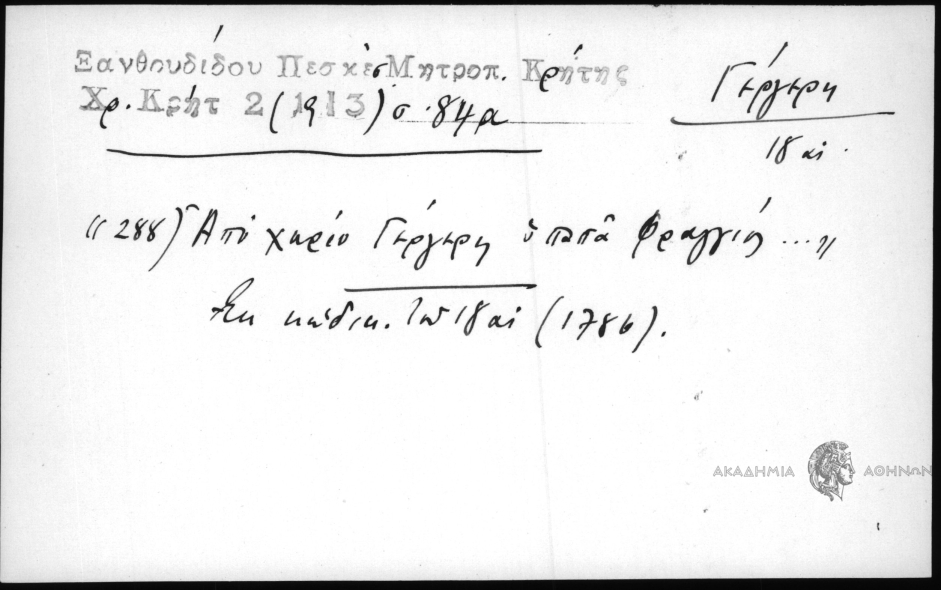 Ξανθουδίδου Πεσκὲσ Μητροπ. Κρήτης
Χρ. Κρήτ 2 (1913) σ. 84α
Γέργερη
18 αἰ.
"288) Ἀπὸ χωρίο Γέργερη ὁ παπᾶ Φραγγιός ..."
Ἐκ κώδικ. τοῦ 18 αἰ (1786).
ΑΚΑΔΗΜΙΑ ΑΘΗΝΩΝ